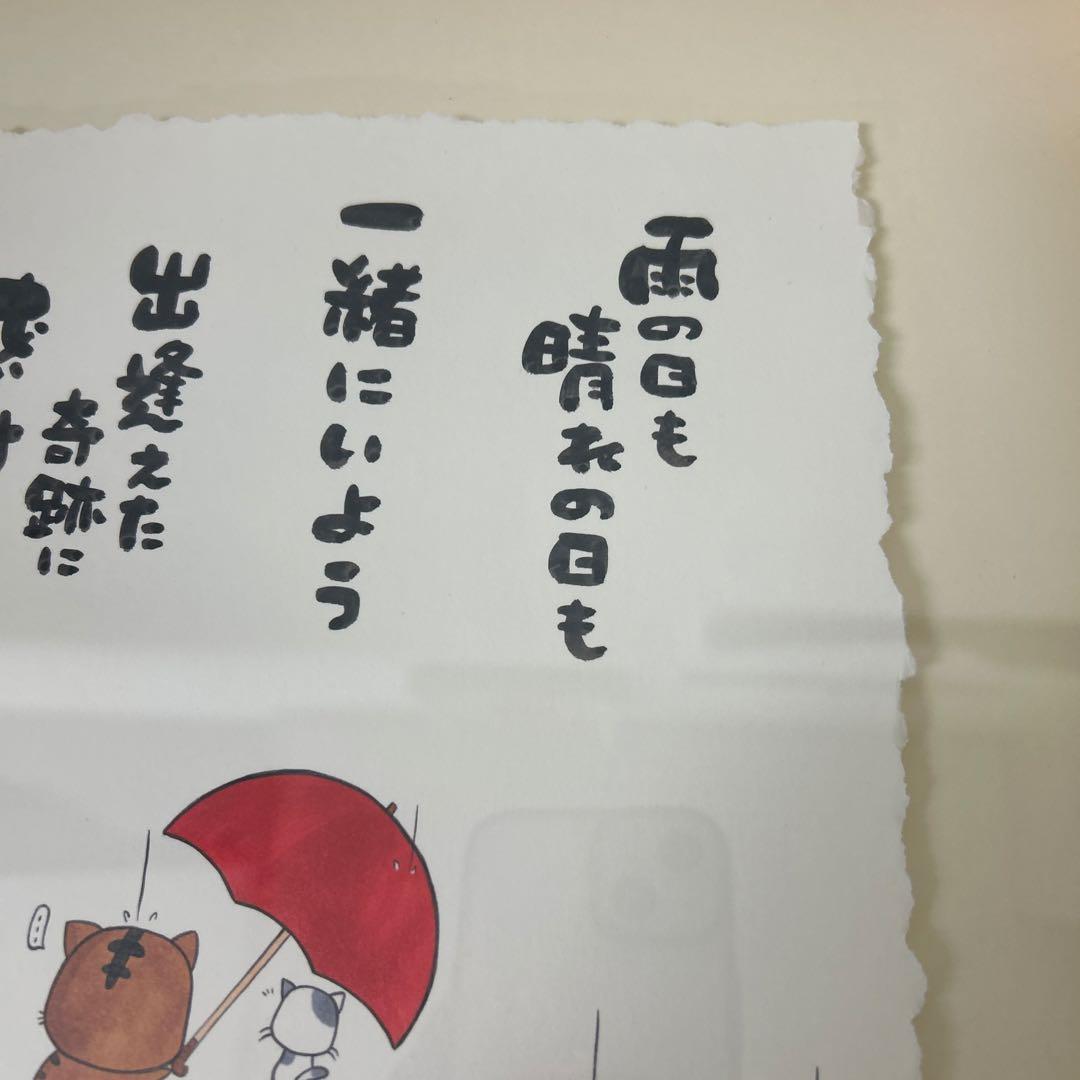 雨の日も
晴れの日も
一緒にいよう
出逢えた
奇跡に